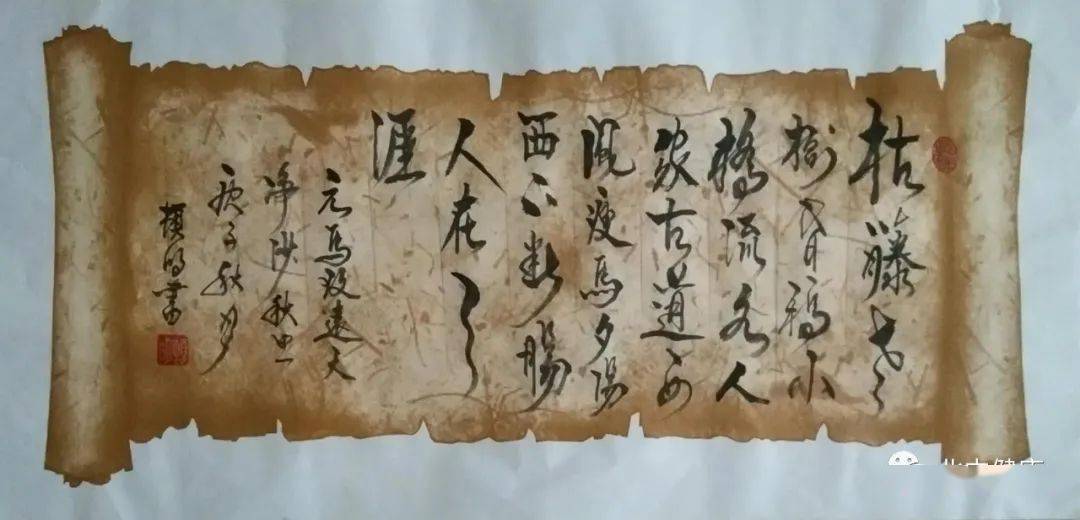 枯藤老
樹昏鴉小
橋流水人
家古道西
風瘦馬夕陽
西下断腸
人在天
涯
元馬致遠天
净沙秋思
庚子秋月
書